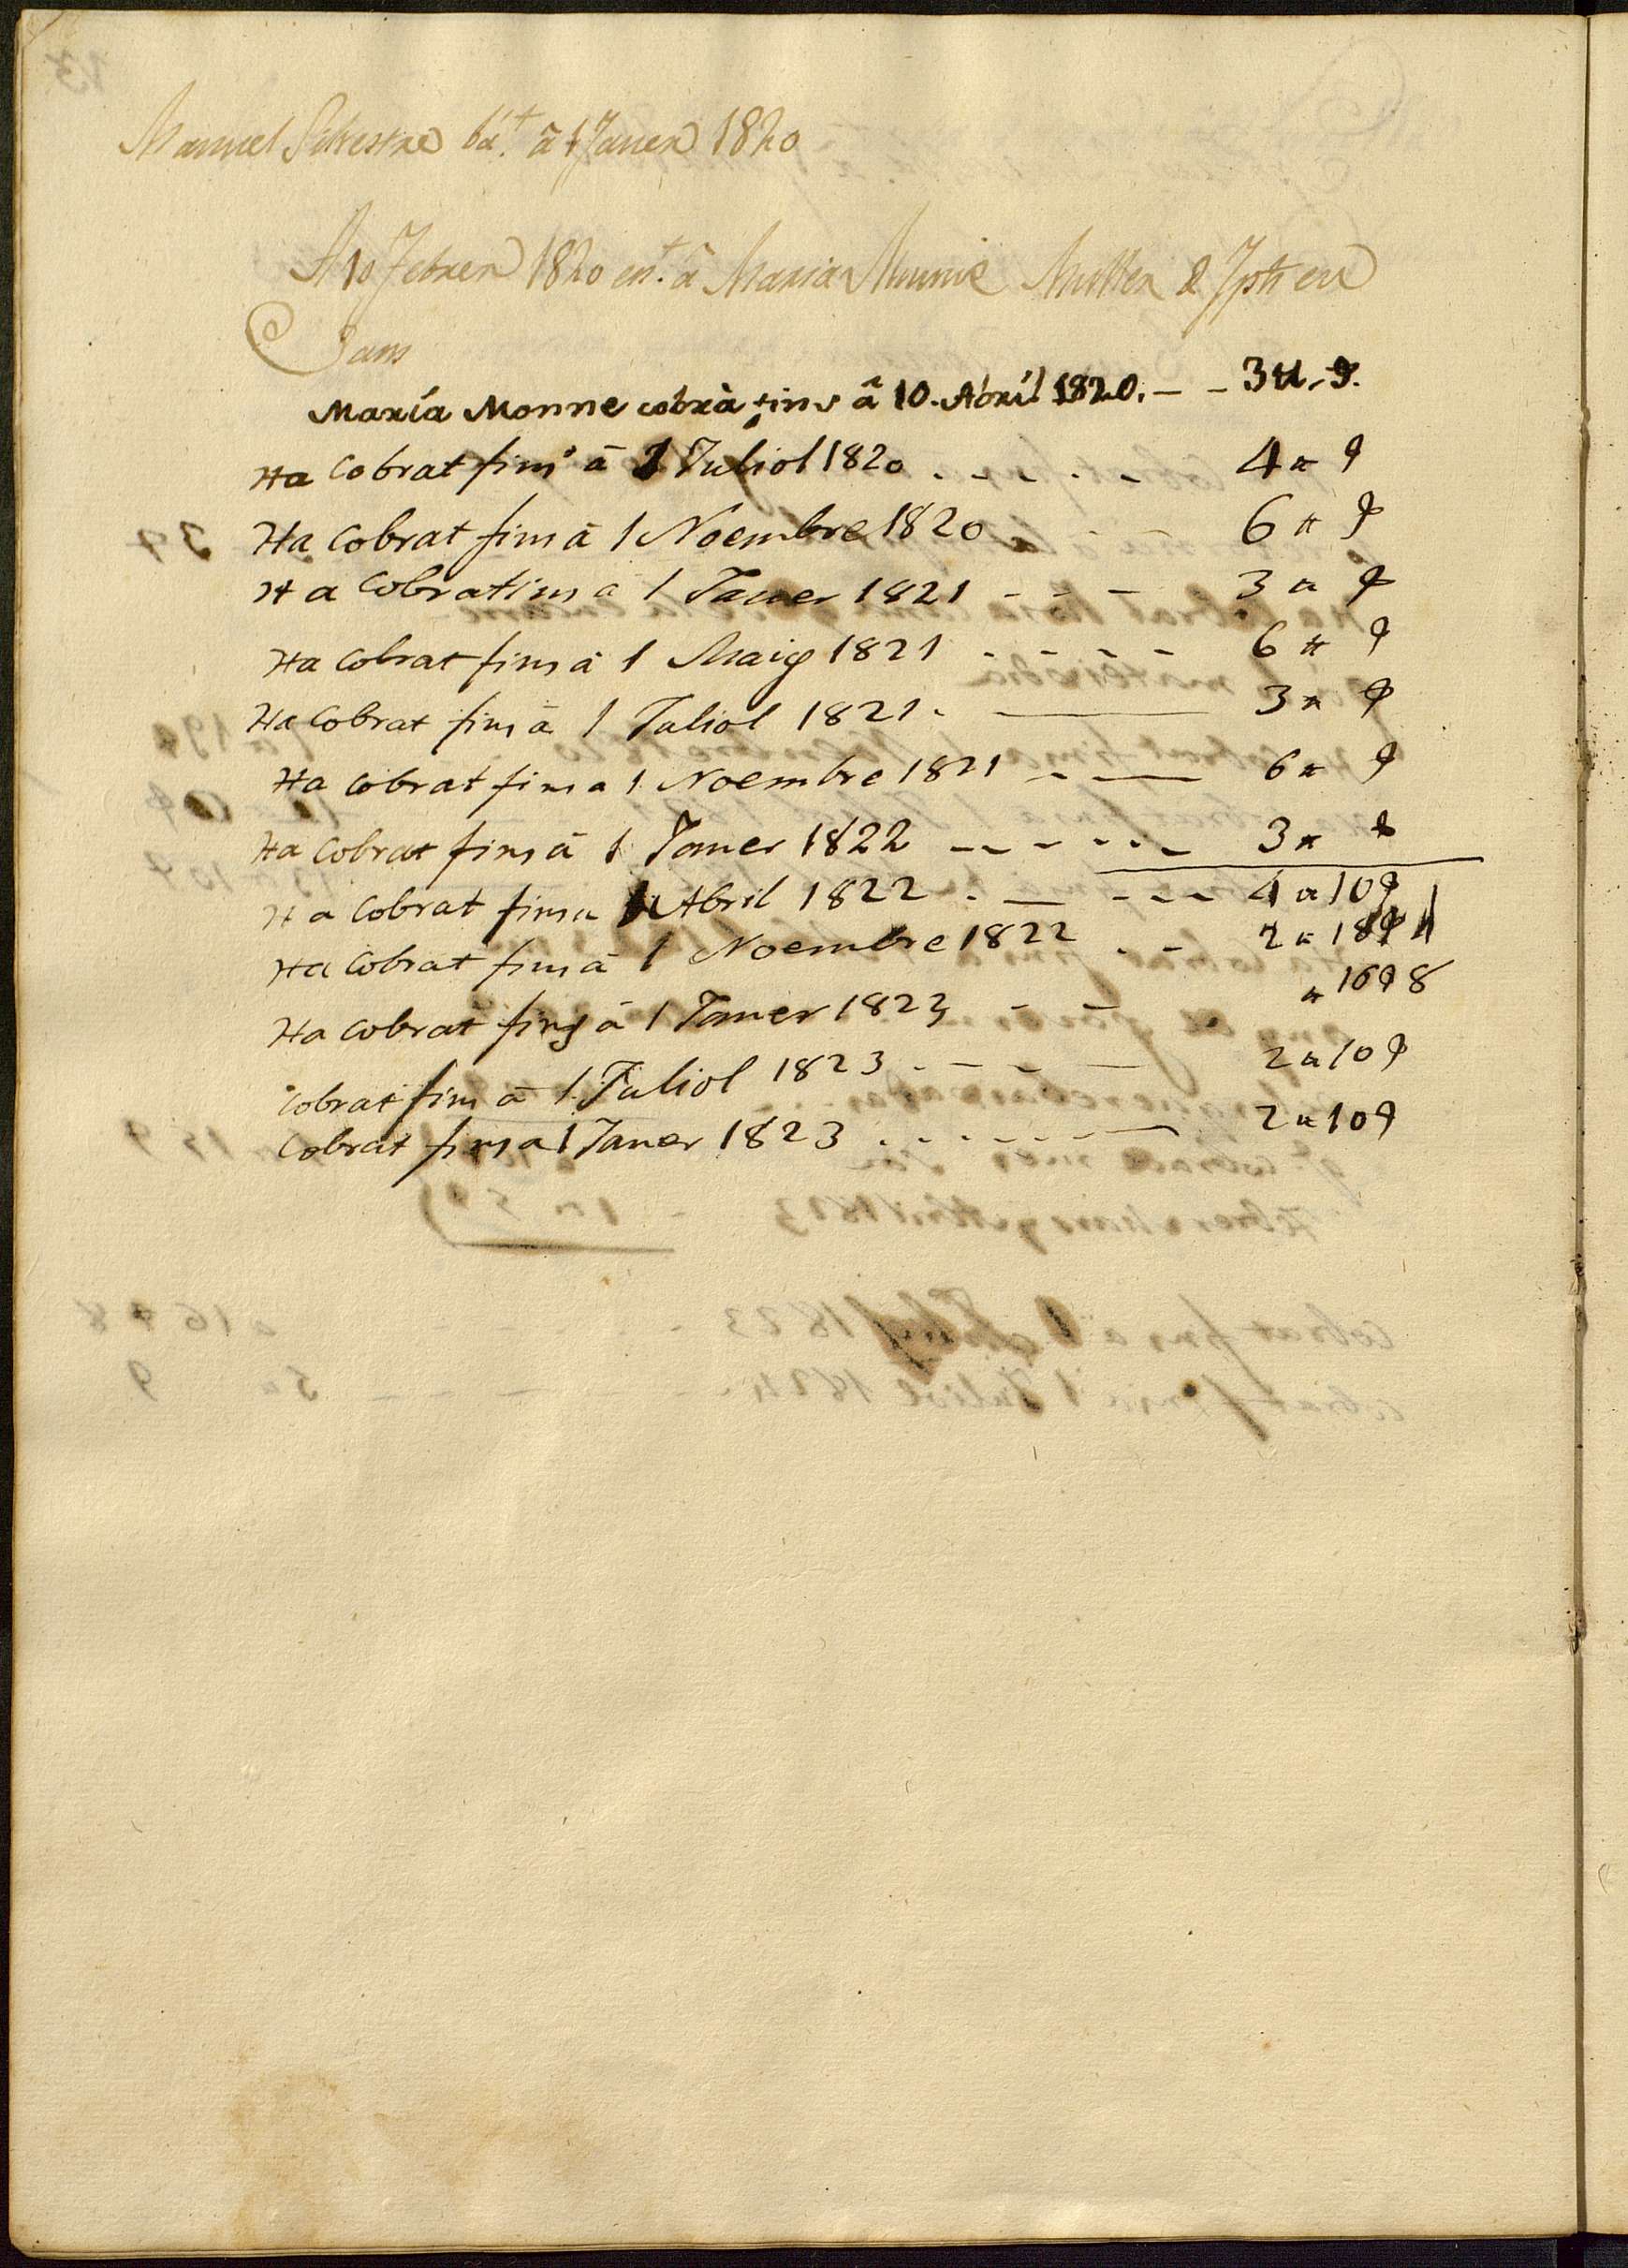 Manuel Silvestre bat. â 1 Janer 1820
A 10 Febrer 1820 ent. â Maria Munné Muller & Jph en
Sans
María Monne cobrà fins â 10. Abril 1820. - - 3 tt. 9.
Ha Cobrat fins â 1 Juliol 1820 . - - . - 4 tt 9
Ha Cobrat fins â 1 Noembre 1820 - - 6 tt 9
Ha Cobrat fins a 1 Janer 1821 - - - 3 tt 9
Ha Cobrat fins â 1 Maig 1821 - - - - 6 tt 9
Ha Cobrat fins â 1 Juliol 1821 - — 3 tt 9
Ha Cobrat fins a 1 Noembre 1821 - — 6 tt 9
Ha Cobrat fins â 1 Janer 1822 - - - - - 3 tt 9
Ha Cobrat fins a 1 Abril 1822 . — - - - 4 tt 10 9
Ha Cobrat fins â 1 Noembre 1822 . - 2 tt 18 9 4
Ha Cobrat fins â 1 Janer 1823 - - tt 16 9 8
Cobrat fins â 1 Juliol 1823 . - - - — 2 tt 10 9
Cobrat fins a 1 Janer 1823 . . - - - — 2 tt 10 9